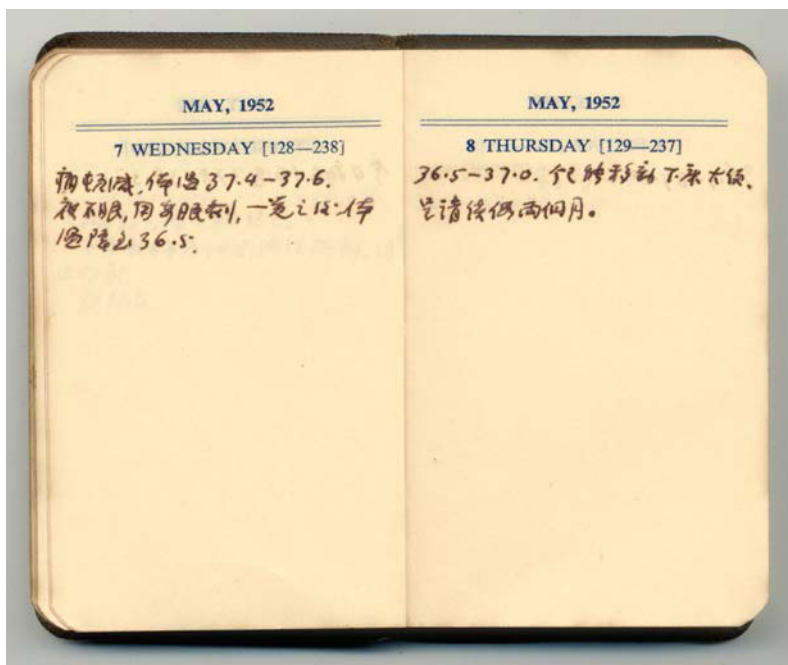 MAY, 1952
7 WEDNESDAY [128—238]
病勢減. 体温 37.4–37.6.
夜不眠, 用安眠剤, 一覚之後体
温降至 36.5.
MAY, 1952
8 THURSDAY [129—237]
36.5–37.0. 移動下床大便.
請假両個月。